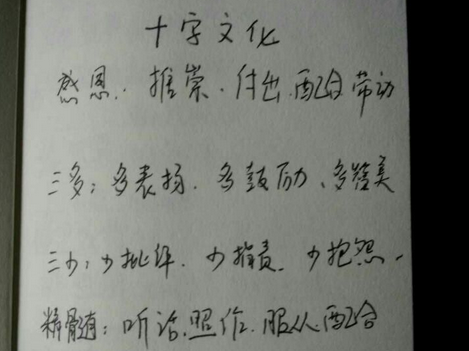 十字文化
感恩.推崇.付出.配合 带动
三多:多表扬.多鼓励、多赞美
三少:少批评.少指责.少抱怨.
精髓:听话.照作.服从.配合